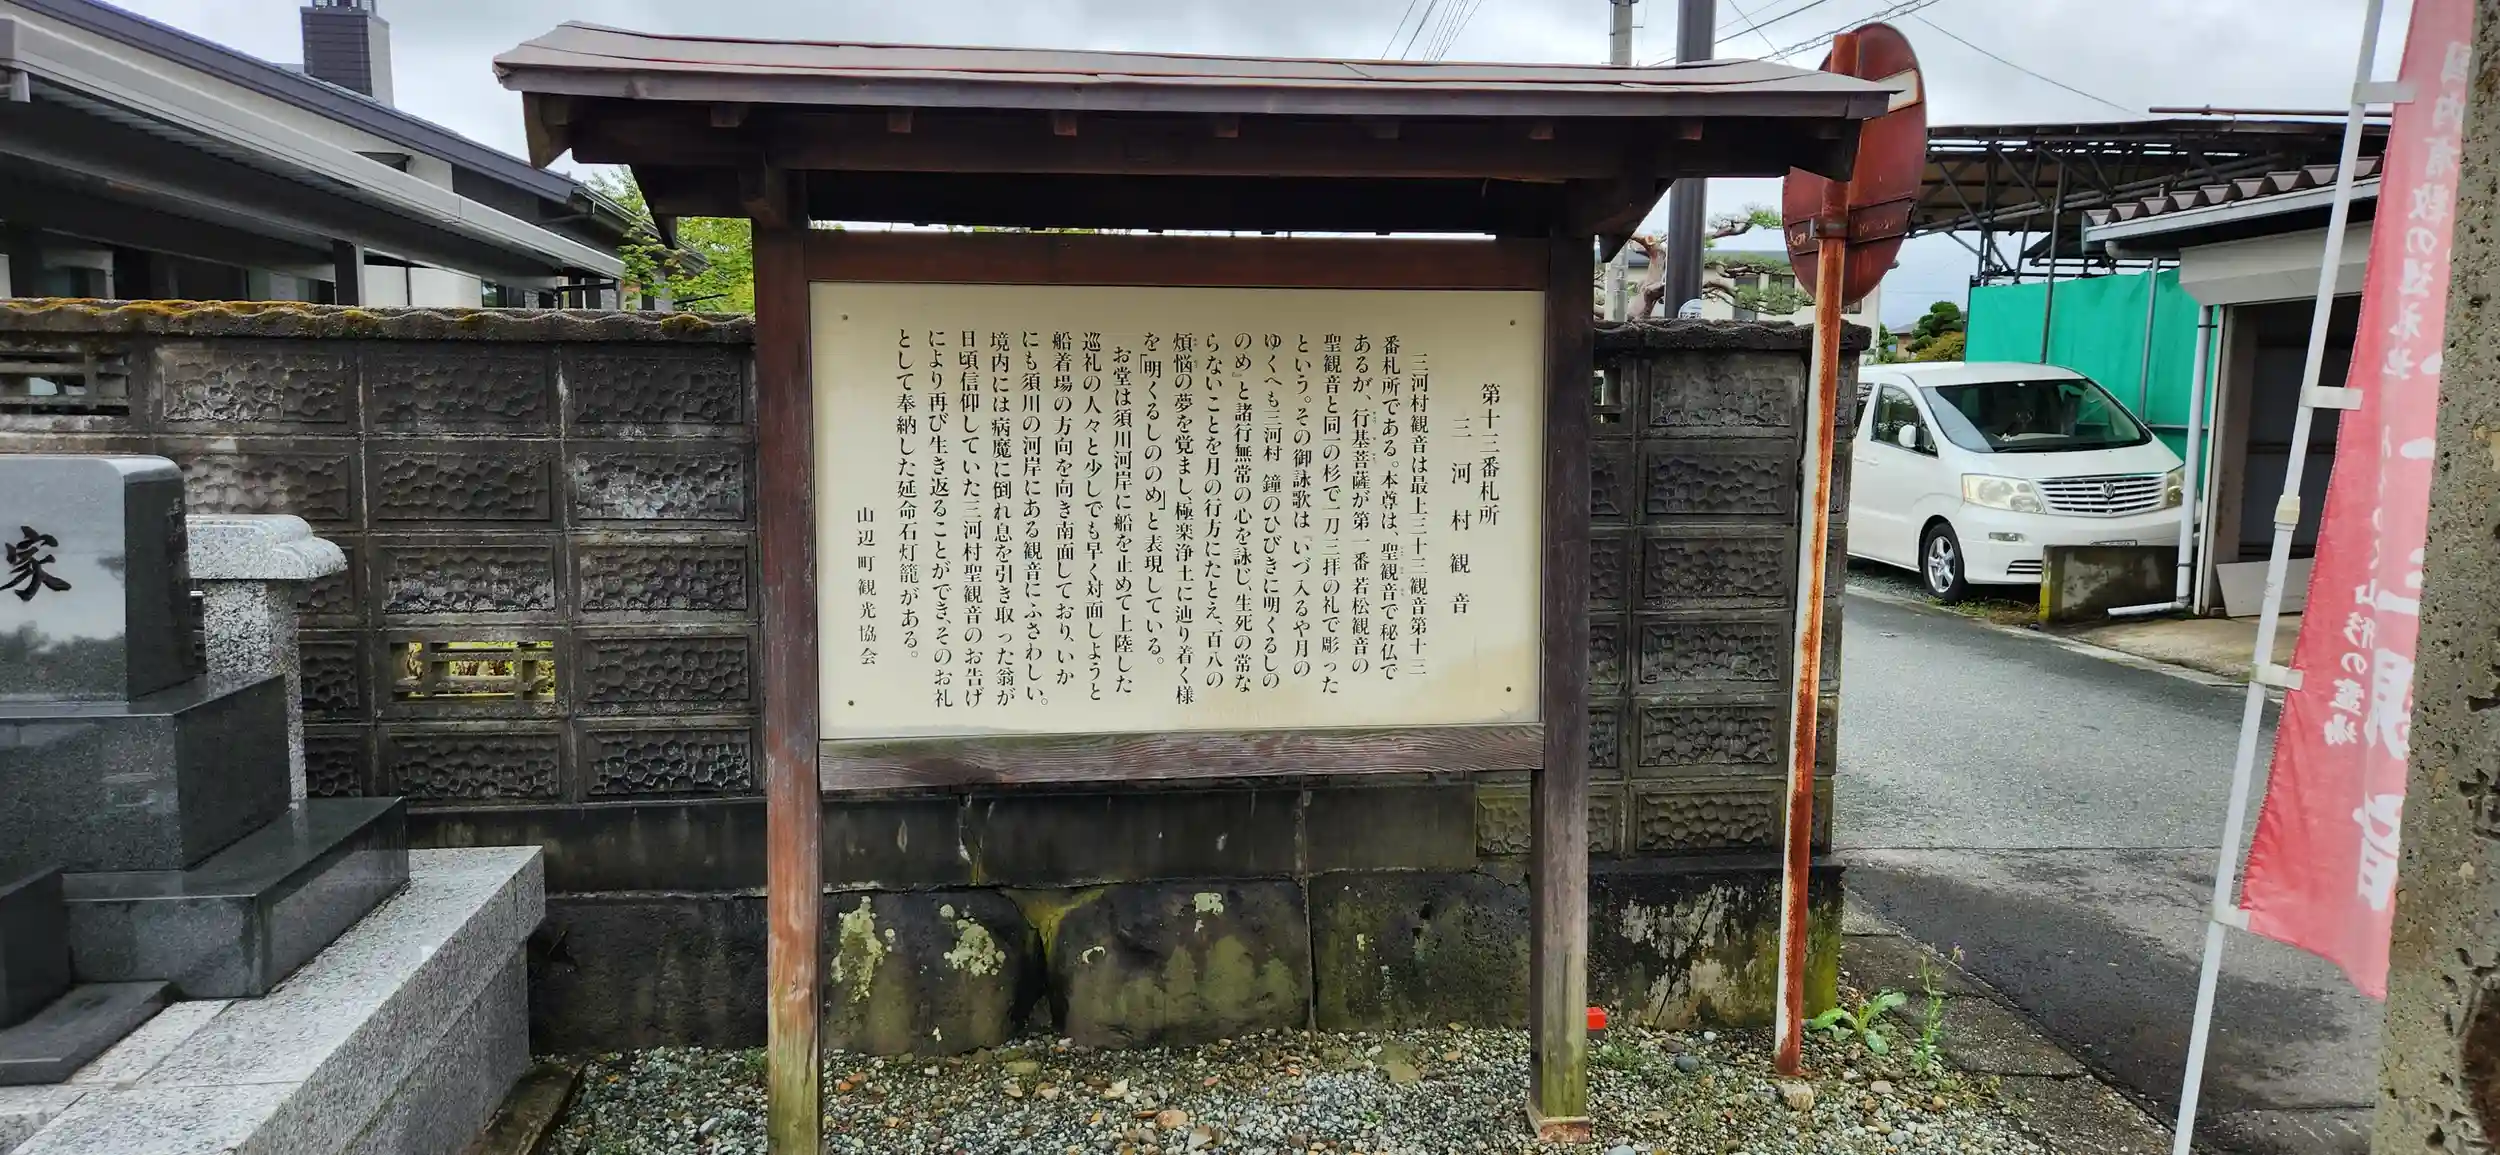 第十三番札所
三河村観音
三河村観音は最上三十三観音第十三
番札所である。本尊は、聖観音で秘仏で
あるが、行基菩薩が第一番若松観音の
聖観音と同一の杉で一刀三拝の礼で彫った
という。その御詠歌は『いづ入るや月の
ゆくへも三河村 鐘のひびきに明くるしの
のめ』と諸行無常の心を詠じ、生死の常な
らないことを月の行方にたとえ、百八の
煩悩の夢を覚まし、極楽浄土に辿り着く様
を「明くるしののめ」と表現している。
お堂は須川河岸に船を止めて上陸した
巡礼の人々と少しでも早く対面しようと
船着場の方向を向き南面しており、いか
にも須川の河岸にある観音にふさわしい。
境内には病魔に倒れ息を引き取った翁が
日頃信仰していた三河村聖観音のお告げ
により再び生き返ることができ、そのお礼
として奉納した延命石灯籠がある。
山辺町観光協会
家
国内有数の巡礼地
山形の霊場